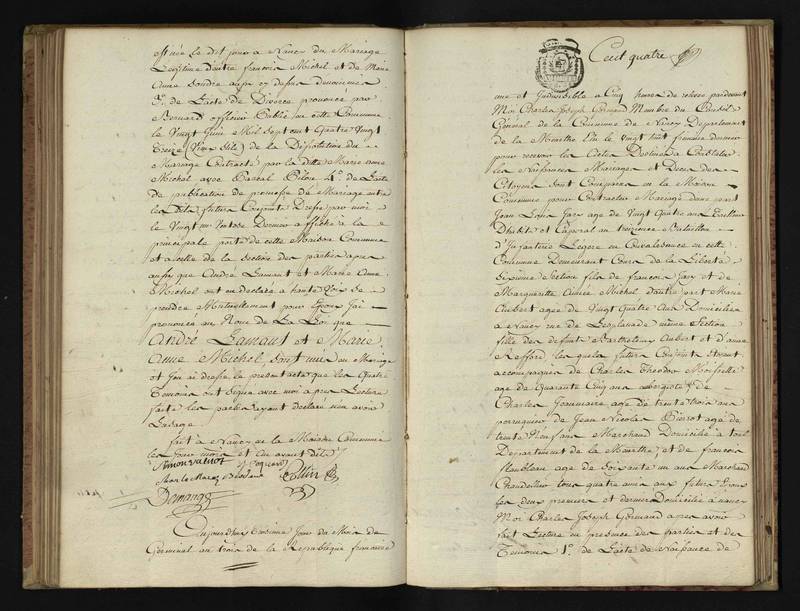 du Mariage
Légitime d'entre françois Michel et de Marie
3.° de l'acte de Divorce prononcé par
Bernard officier Public en cette Commune
le Vingt Juin Mil Sept cent Quatre Vingt
treize (Vieux Stile) de la Dissolution du
Mariage Contracté par la ditte Marie anne
Michel avec Pascal 4.° de l'acte
de publication de promesse de Mariage entre
les dits futurs Conjoints Dressé par moi
le Vingt Ventose Dernier affiché à la
principale porte de cette Maison Commune
et à celle de la Section des parties après
aussi que André Lamant et Marie Anne
Michel ont eu déclaré à haute Voix se
prendre Mutuellement pour Epoux J'ai
prononcé au Nom de La Loi que
André Lamant et Marie
Anne Michel sont unis en Mariage
et J'en ai dressé le présent acte que les Quatre
Temoins ont Signé avec moi après Lecture
faite les parties ayant déclaré n'en avoir
L'usage
fait à Nancy en la Maison Commune
les Jour mois et an avant dits
Demangeot
Aujourd'huy troisieme Jour du Mois de
Germinal an trois de la République française
Cent quatre
une et Indivisible à Cinq heures de relevée pardevant
Moi Charles Joseph Germand Membre du Conseil
Général de la Commune de Nancy Département
de la Meurthe Elu le vingt huit frimaire dernier
pour recevoir les Actes Destinés à Constater
les Naissances Mariages et Deces des
Citoyens Sont Comparus en la Maison
Commune pour Contracter Mariage d'une part
Jean Louis agé de Vingt Quatre ans
D'habits et Caporal au treizieme Bataillon
d'Infanterie Légere en Convalescence en cette
Commune Demeurant Cours de la Liberté
Sixieme Section fils de françois et de
Marguerite Aimée Michel d'autre part Marie
Aubert agée de Vingt Quatre ans Domiciliée
à Nancy rue de L'esplanade même Section
fille des defunts Barthelemy Aubert et d'anne
les quels futurs Conjoints étoient
accompagnés de Charles Theodore
agé de Quarante Cinq ans de
Charles agé de trente trois ans
perruquier de Jean Nicolas Pierrot agé de
trente ans Marchand Domicilié à toul
Departement de la Meurthe et de françois
agé de Soixante un ans Marchand
Chandellier tous quatre amis aux futurs Epoux
les deux premiers et dernier Domiciliés à Nancy
Moi Charles Joseph Germand après avoir
fait Lecture en presence des parties et des
Temoins 1.° de l'acte de Naissance de